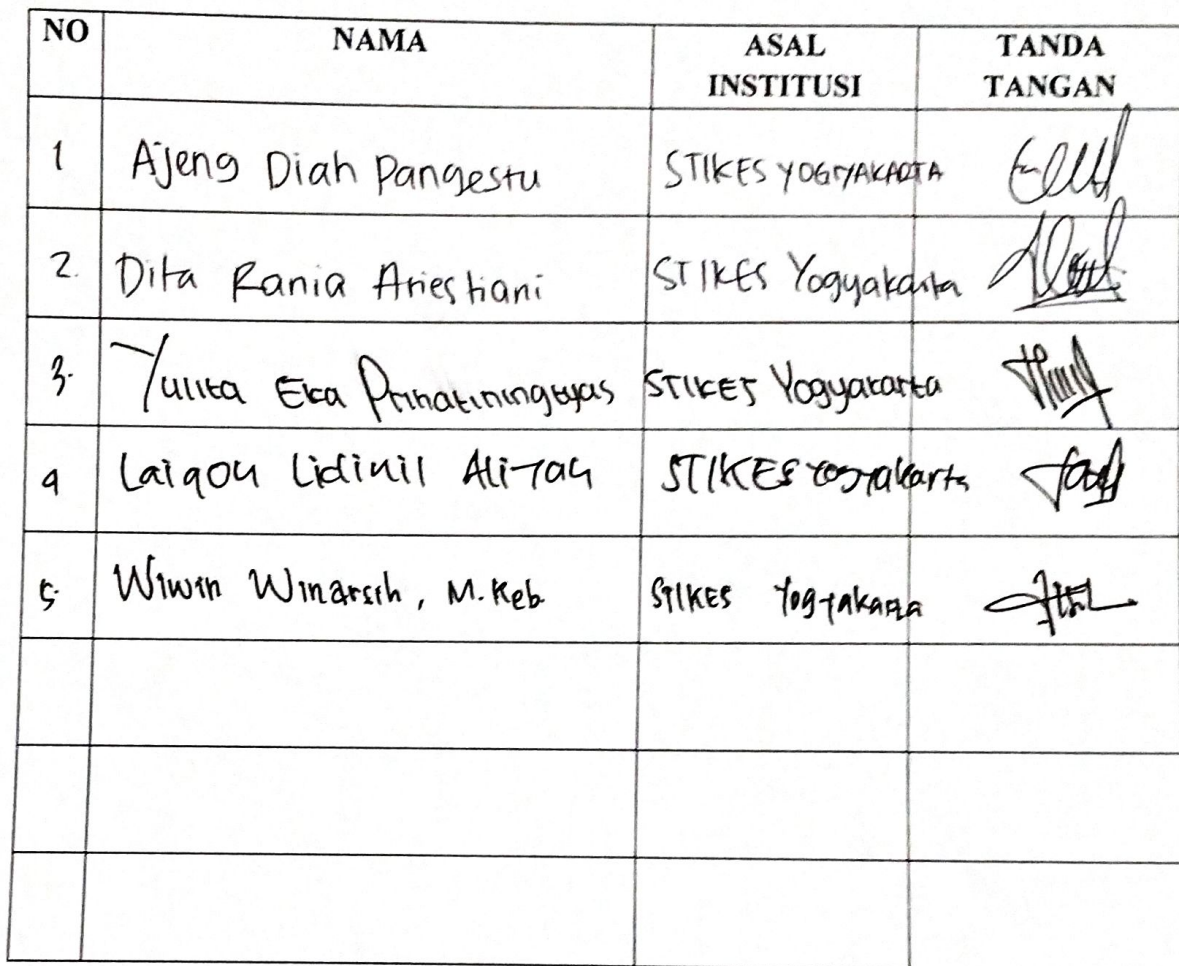 NO NAMA ASAL INSTITUSI TANDA TANGAN
1 Ajeng Diah Pangestu STIKES YOGYAKARTA
2. Dita Rania Ariestiani STIKES Yogyakarta
3. Yulita Eka Prihatiningtyas STIKES Yogyakarta
4 STIKES Yogyakarta
5. Wiwin Winarsih, M.Keb. STIKES Yogyakarta